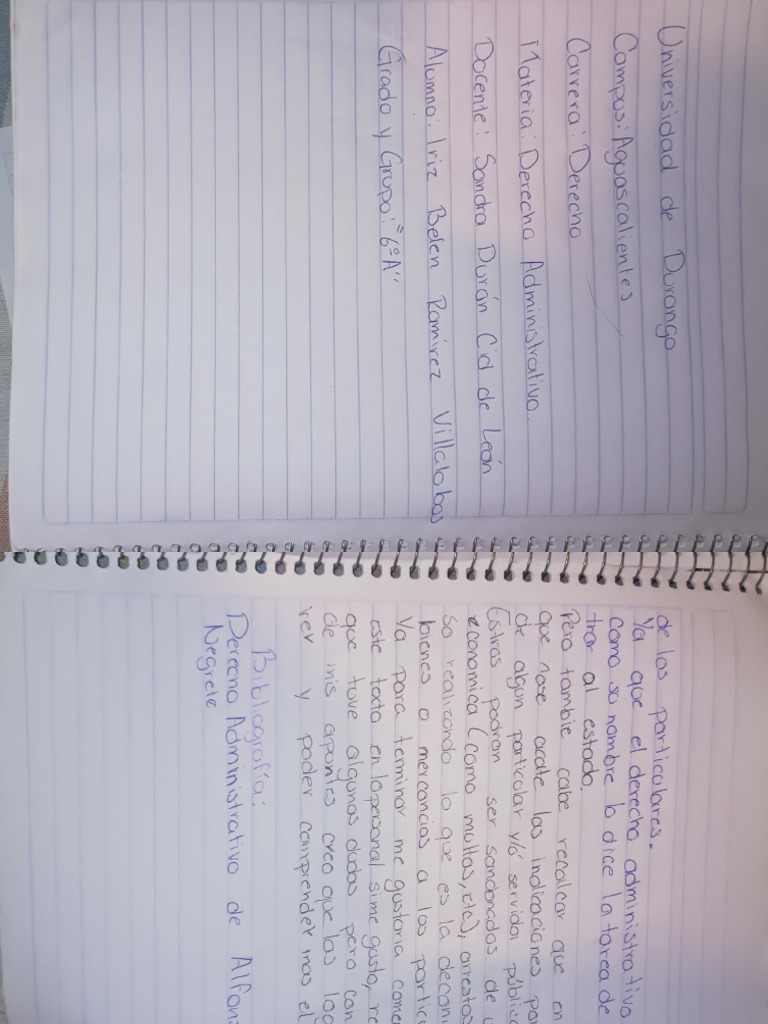 Universidad de Durango
Campus: Aguascalientes
Carrera: Derecho
Materia: Derecho Administrativo.
Docente: Sandra Durán Cid de León
Alumno: Iriz Belen Ramírez Villalobos
Grado y Grupo: "6º A"
de los particulares.
Ya que el derecho administrativo
como su nombre lo dice la tarea de
trar al estado.
Pero tambie cabe recalcar que en
que nose acate las indicaciones por
de algun particular y/ó servidor públic
Estros podran ser sandonados de
economica (como multas, etc), arrestos
so realizando lo que es la decomi
bienes o mercancias a los particu
Ya para terminar me gustaria comen
este texto en lo personal si me gusto, re
que tuve algunas dudas pero con
de mis apuntes creo que las log
rer y poder comprender mas el
Bibliografía:
Derecho Administrativo de Alfons
Negrete